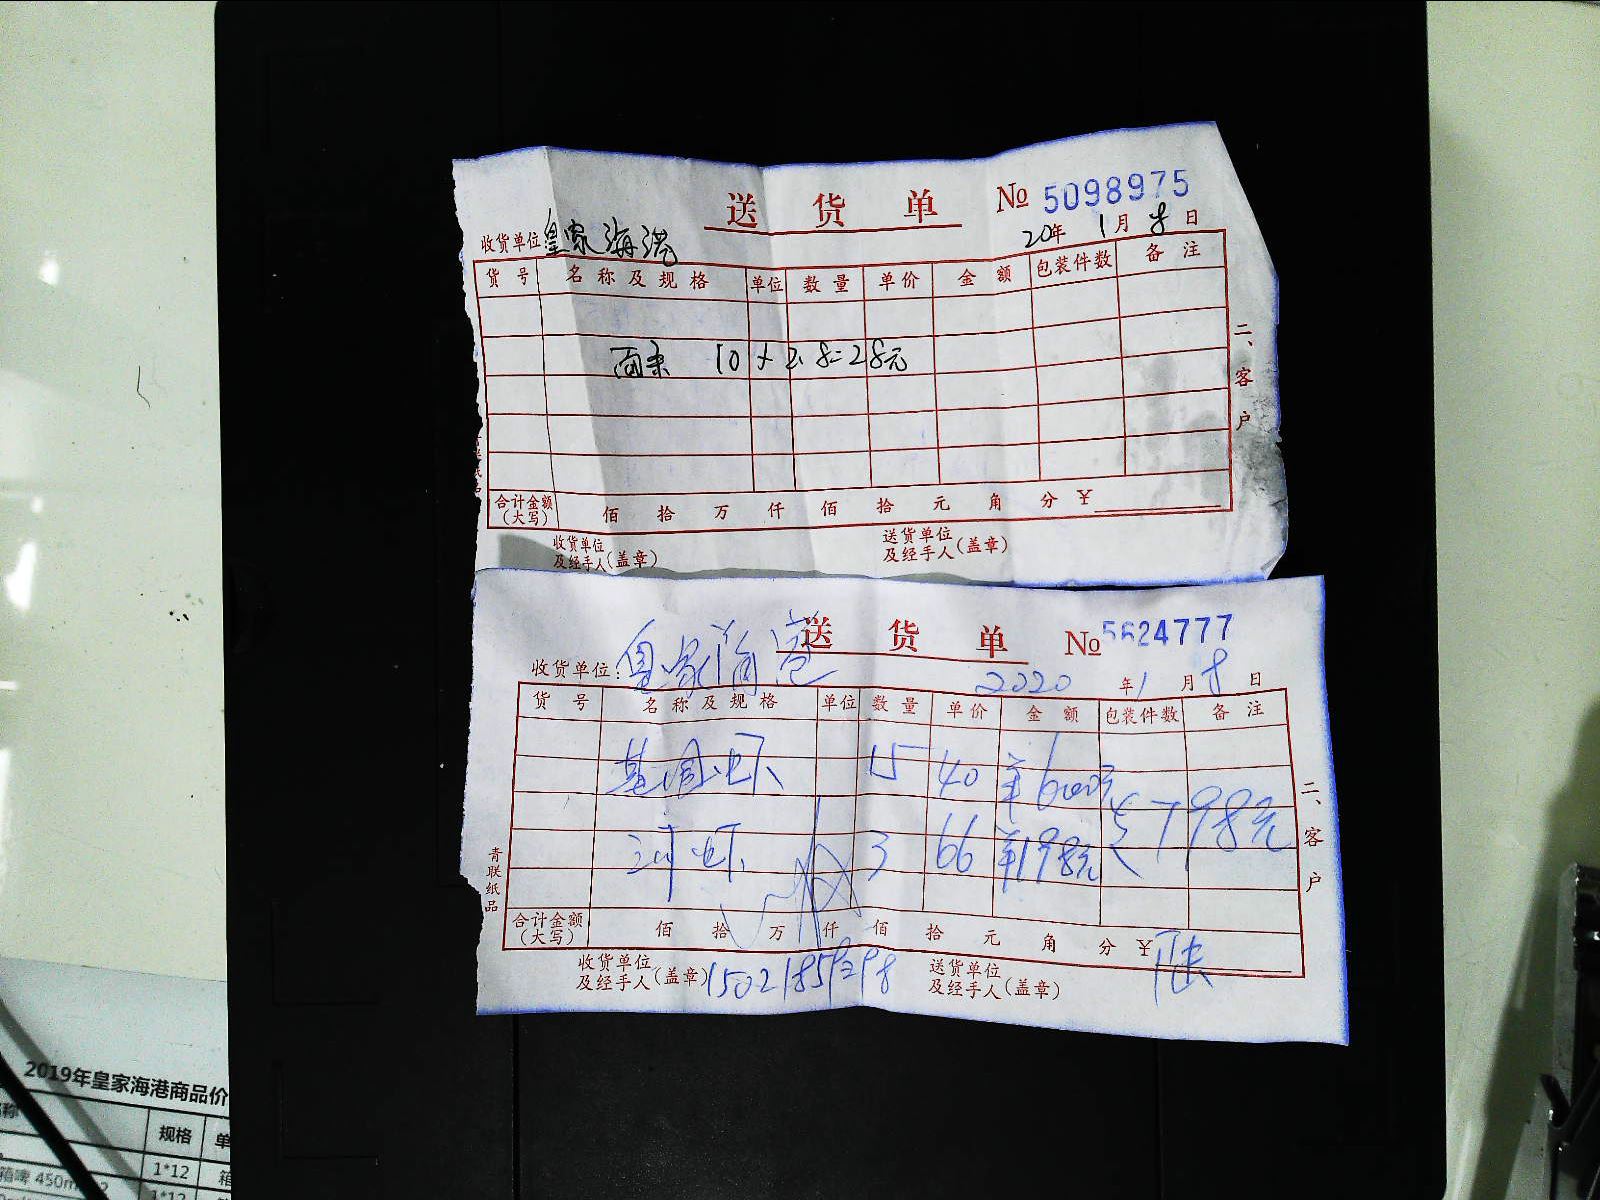 送 货 单 № 5098975
收货单位皇家海港 20年 1月 8日
货 号 名称及规格 单位 数量 单价 金 额 包装件数 备 注
面条 10×2.8=28元
二、客户
合计金额(大写) 佰 拾 万 仟 佰 拾 元 角 分 ¥
收货单位及经手人(盖章) 送货单位及经手人(盖章)
送 货 单 № 5624777
收货单位:皇家海港 2020年 1月 8日
货 号 名称及规格 单位 数量 单价 金 额 包装件数 备 注
基围虾 15 40 羊600元
798元
河虾 3 66 羊198元
二、客户
青联纸品
合计金额(大写) 佰 拾 万 仟 佰 拾 元 角 分 ¥
收货单位及经手人(盖章) 送货单位及经手人(盖章)
2019年皇家海港商品价
规格 单
1*12 箱
箱啤 450m
1*12